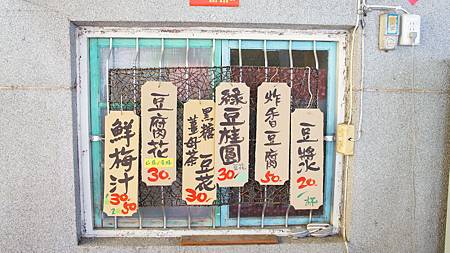 鮮梅汁
30.
50
豆腐花
30.
黑糖
薑母茶
豆花
30.
綠豆桂圓
30.
炸香豆腐
50.
豆漿
20.
杯